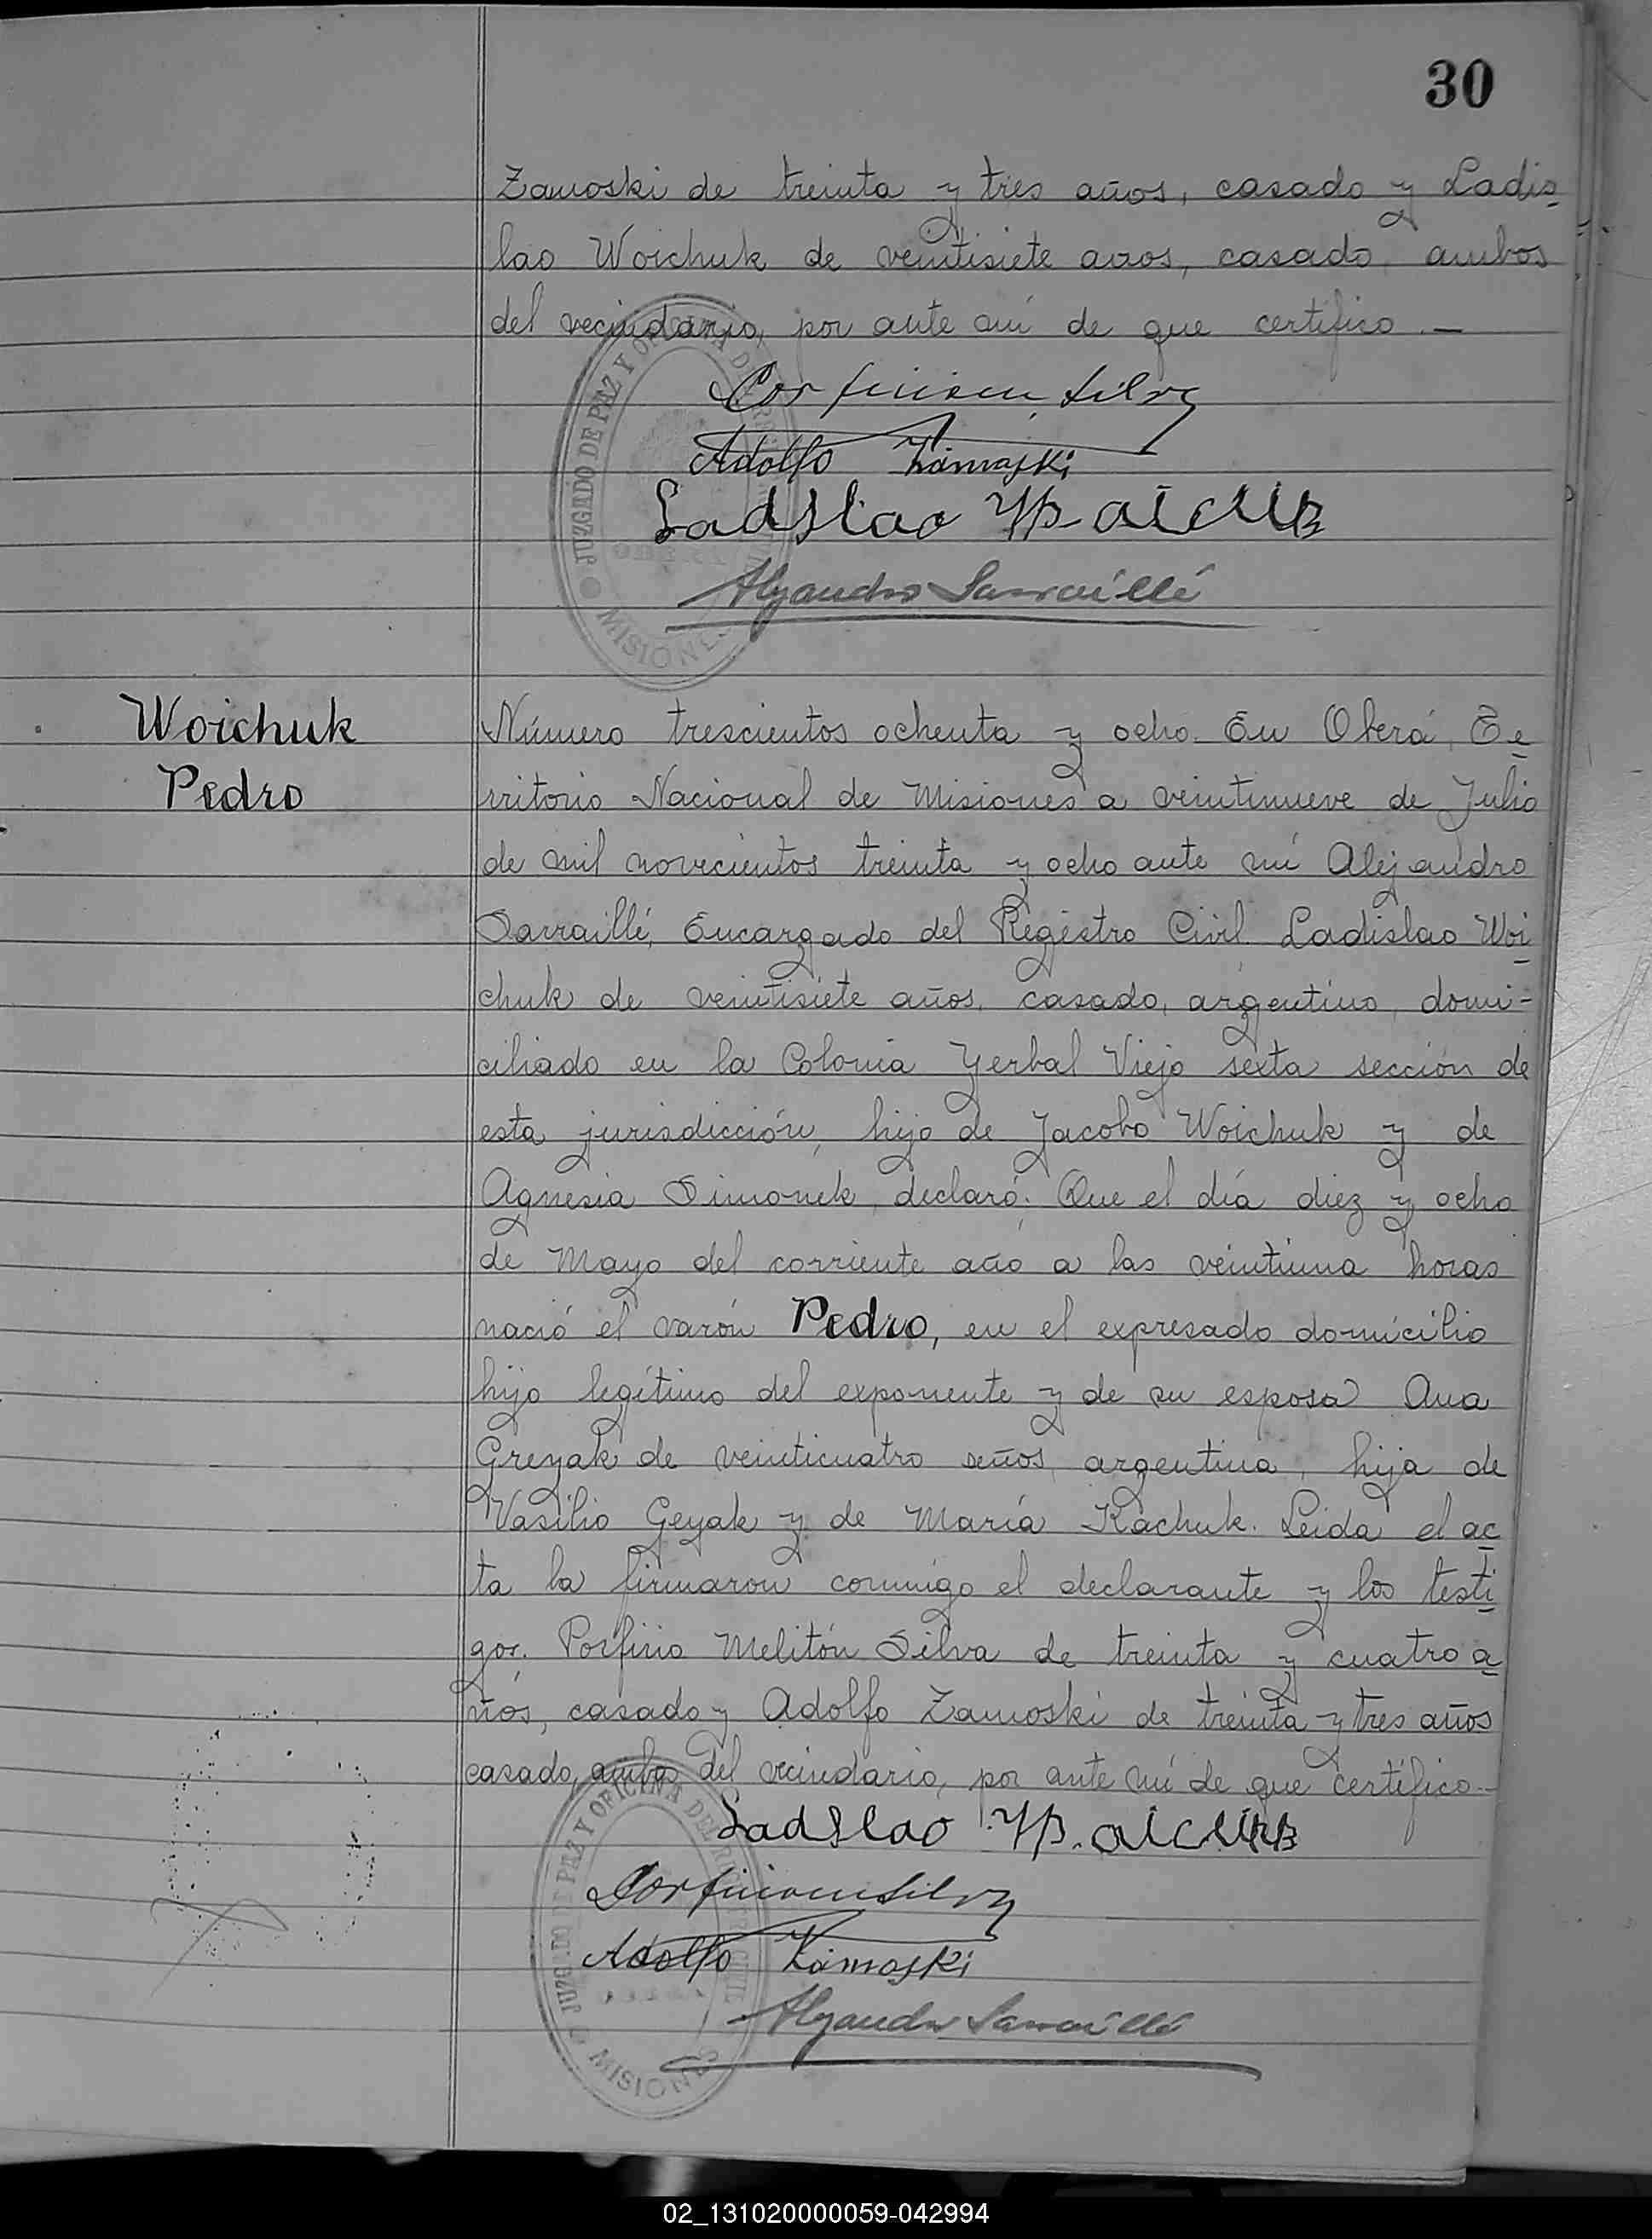 30
Zamoski de treinta y tres años, casado y Ladis
lao Woichuk de veintisiete años, casado, ambos
del vecindario, por ante mí de que certifico.—
Silva
Adolfo Zamoski
Ladislao
Alejandro Sarraillé
JUZGADO DE PAZ Y OFICINA DEL REGISTRO CIVIL
MISIONES
Woichuk
Pedro
Número trescientos ochenta y ocho. En Oberá, Te
rritorio Nacional de Misiones a veintinueve de Julio
de mil novecientos treinta y ocho ante mí Alejandro
Sarraillé, Encargado del Registro Civil. Ladislao Woi
chuk de veintisiete años, casado, argentino, domi-
ciliado en la Colonia Yerbal Viejo sexta sección de
esta jurisdicción, hijo de Jacobo Woichuk y de
Agnesia Simonek, declaró: Que el día diez y ocho
de Mayo del corriente año a las veintiuna horas
nació el varón Pedro, en el expresado domicilio
hijo legítimo del exponente y de su esposa Ana
Greyak de veinticuatro años, argentina, hija de
Vasilio Geyak y de María Kachuk. Leida el ac
ta la firmaron conmigo el declarante y los testi
gos. Porfirio Melitón Silva de treinta y cuatro a
ños, casado y Adolfo Zamoski de treinta y tres años
casado, ambos del vecindario, por ante mí de que certifico.—
Ladislao
Silva
Adolfo Zamoski
Alejandro Sarraillé
JUZGADO DE PAZ Y OFICINA DEL REGISTRO CIVIL
MISIONES
02_131020000059-042994